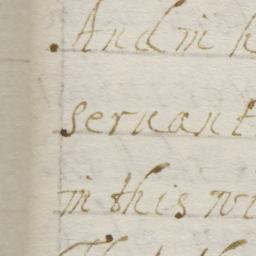 And in h
seruant
in this wi